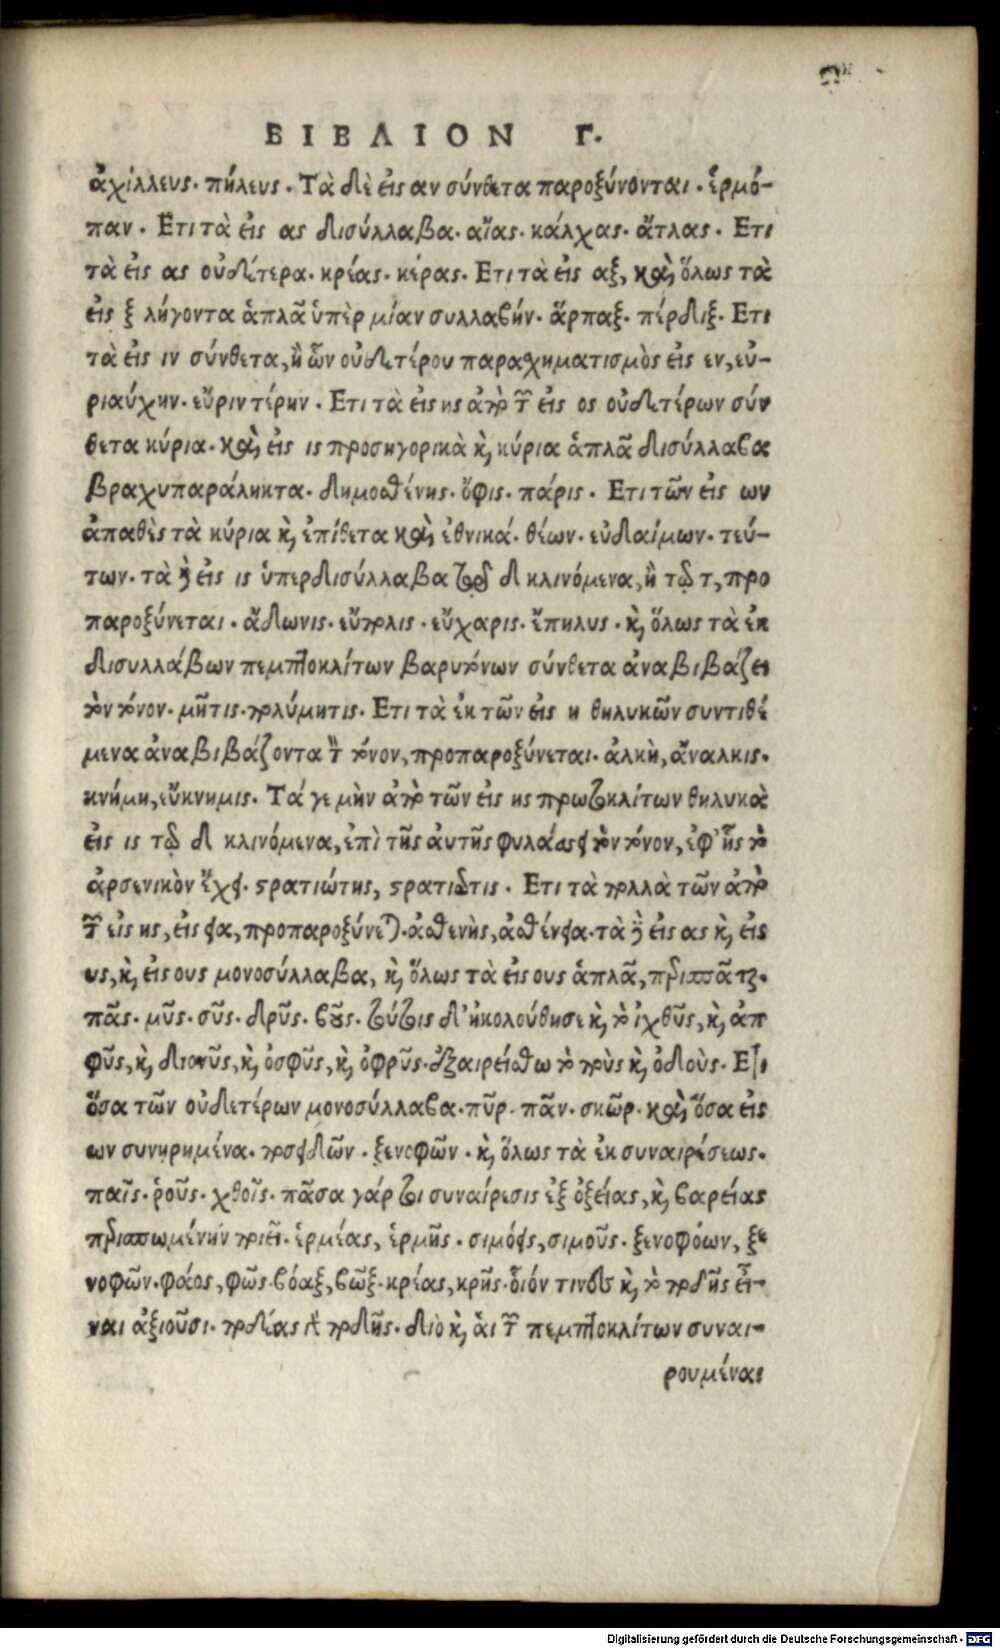 ΒΙΒΛΙΟΝ Γ.
ἀχίλλευς. πήλευς. Τὰ δὲ εἰς αν σύνθετα παροξύνονται. ἑρμό-
παν. Ετι τὰ εἰς ας δισύλλαβα. αἴας. κάλχας. ἄτλας. Ετι
τὰ εἰς ας οὐδέτερα. κρέας. κέρας. Ετι τὰ εἰς αξ, καὶ ὅλως τὰ
εἰς ξ λήγοντα ἁπλᾶ ὑπὲρ μίαν συλλαβήν. ἅρπαξ. πέρδιξ. Ετι
τὰ εἰς ιν σύνθετα, ἢ ὧν οὐδετέρου παρασχηματισμὸς εἰς εν, εὐ-
ριαύχην. εὔριν τέρην. Ετι τὰ εἰς ης ἀπὸ τῶν εἰς ος οὐδετέρων σύν
θετα κύρια. καὶ εἰς ις προσηγορικὰ καὶ κύρια ἁπλᾶ δισύλλαβα
βραχυπαράληκτα. δημοσθένης. ὄφις. πάρις. Ετι τῶν εἰς ων
ἀπαθὲς τὰ κύρια καὶ ἐπίθετα καὶ ἐθνικά. θέων. εὐδαίμων. τεύ-
των. τὰ δὲ εἰς ις ὑπερδισύλλαβα διὰ τοῦ δ κλινόμενα, ἢ τοῦ τ, προ
παροξύνεται. ἄδωνις. εὔπολις. εὔχαρις. ἔπηλυς. καὶ ὅλως τὰ ἐκ
δισυλλάβων πεμπτοκλίτων βαρυτόνων σύνθετα ἀναβιβάζει
τὸν τόνον. μῆτις. πολύμητις. Ετι τὰ ἐκ τῶν εἰς η θηλυκῶν συντιθέ
μενα ἀναβιβάζοντα τὸν τόνον, προπαροξύνεται. ἀλκὴ, ἄναλκις.
κνήμη, εὔκνημις. Τά γε μὴν ἀπὸ τῶν εἰς ης πρωτοκλίτων θηλυκὰ
εἰς ις τοῦ δ κλινόμενα, ἐπὶ τῆς αὐτῆς φυλάσσει τὸν τόνον, ἐφ' ἧς τὸ
ἀρσενικὸν ἔχει. στρατιώτης, στρατιῶτις. Ετι τὰ πολλὰ τῶν ἀπὸ
τῶν εἰς ης, εἰς εια, προπαροξύνεται. ἀσθενὴς, ἀσθένεια. τὰ δὲ εἰς ας καὶ εἰς
υς, καὶ εἰς ους μονοσύλλαβα, καὶ ὅλως τὰ εἰς ους ἁπλᾶ, περισπᾶται.
πᾶς. μῦς. σῦς. δρῦς. βοῦς. τούτοις δ' ἠκολούθησε καὶ τὸ ἰχθῦς, καὶ ἀπ
φῦς, καὶ διονῦς, καὶ ὀσφῦς, καὶ ὀφρῦς. ἐξαιρείσθω τὸ ποὺς καὶ ὀδοὺς. Ετι
ὅσα τῶν οὐδετέρων μονοσύλλαβα. πῦρ. πᾶν. σκῶρ. καὶ ὅσα εἰς
ων συνηρημένα. ποσειδῶν. ξενοφῶν. καὶ ὅλως τὰ ἐκ συναιρέσεως.
παῖς. ῥοῦς. χθοῖς. πᾶσα γάρ τοι συναίρεσις ἐξ ὀξείας, καὶ βαρείας
περισπωμένην ποιεῖ. ἑρμέας, ἑρμῆς. σιμόεις, σιμοῦς. ξενοφόων, ξε
νοφῶν. φάος, φῶς. βόαξ, βῶξ. κρέας, κρῆς. οἷόν τινες καὶ τὸ ποδῆς εἶ-
ναι ἀξιοῦσι. ποδέας ἢ ποδῆς. διὸ καὶ αἱ τῶν πεμπτοκλίτων συναι-
ρουμέναι
Digitalisierung gefördert durch die Deutsche Forschungsgemeinschaft - DFG